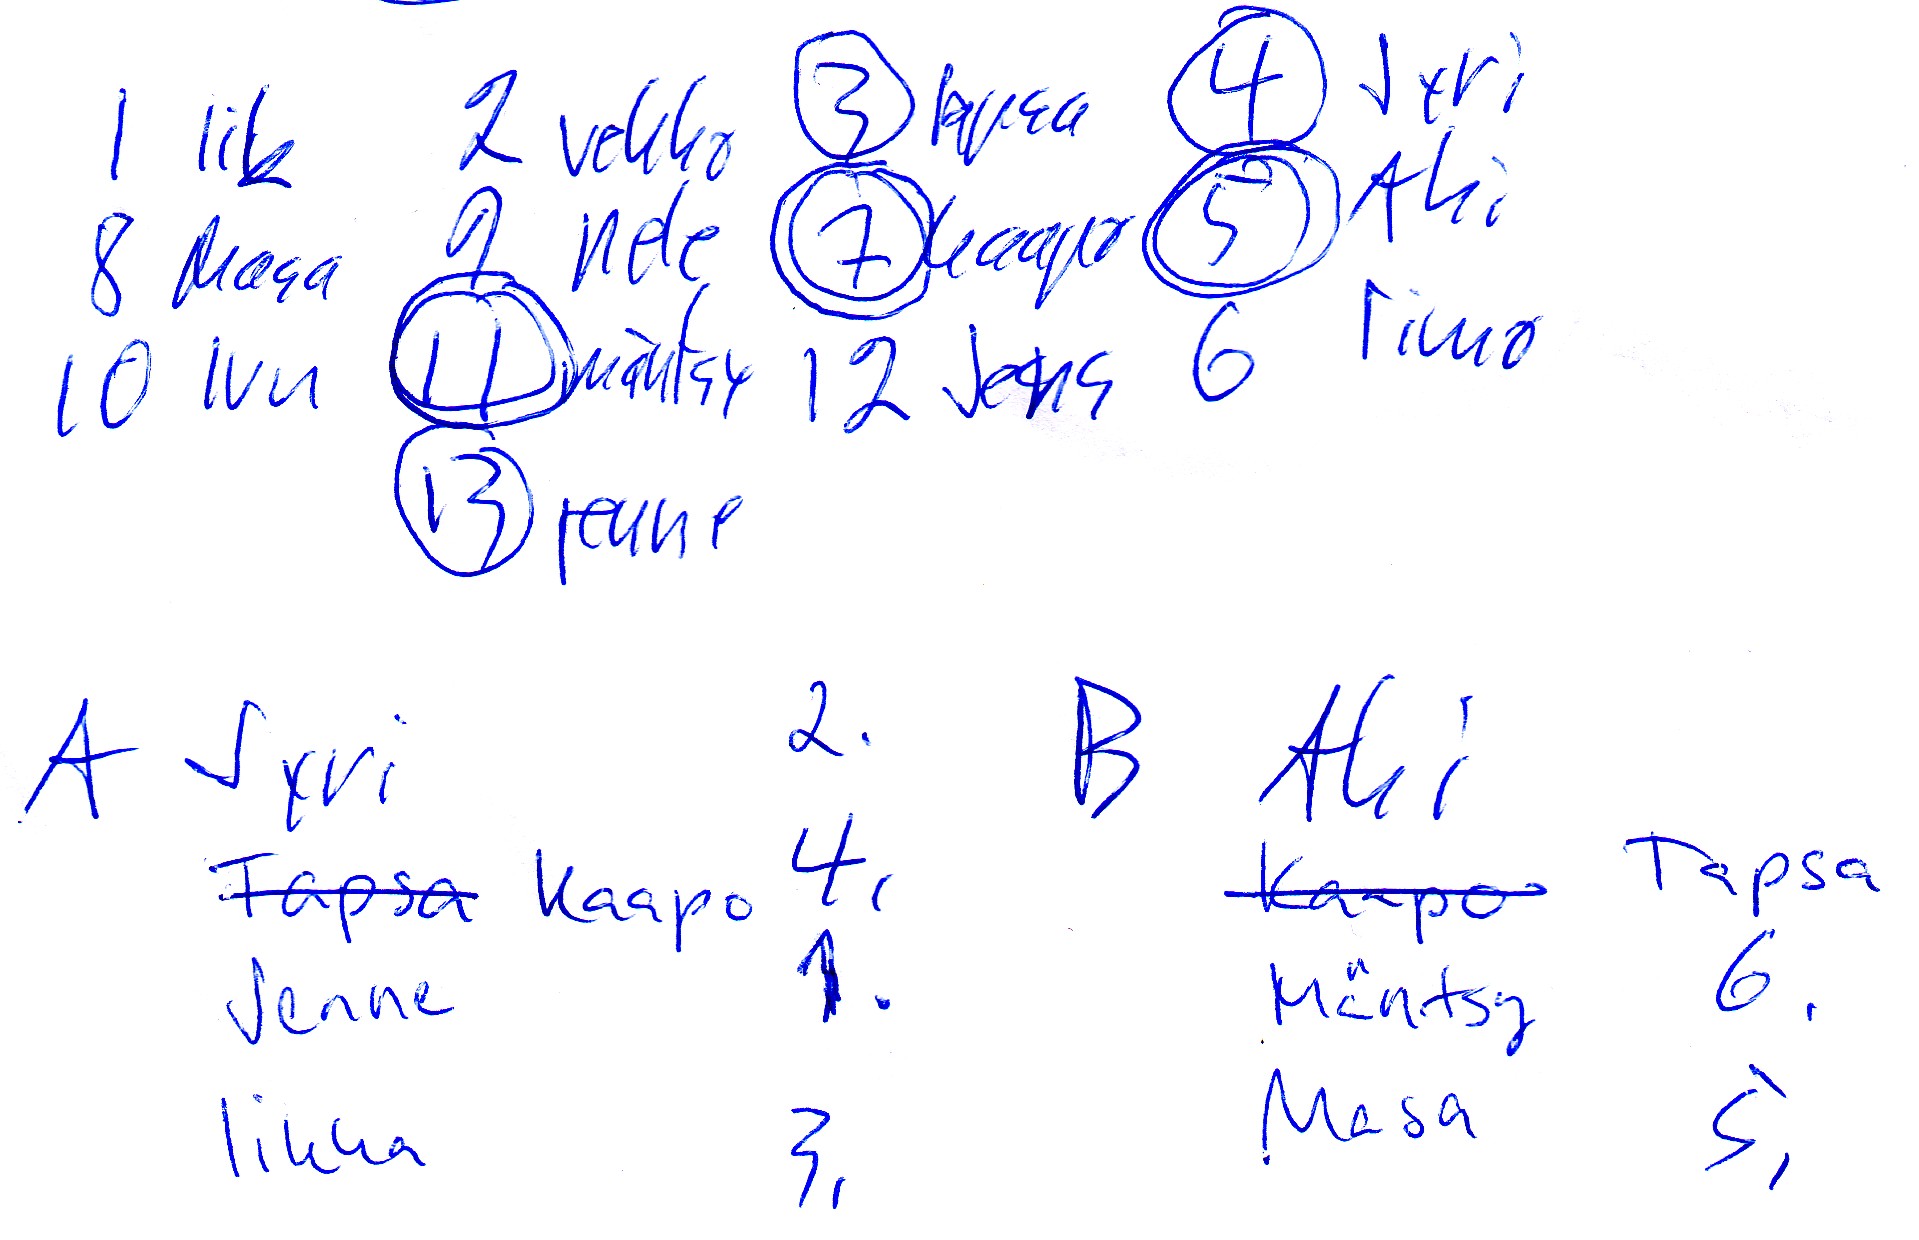 1 Iik 2 Vekko 3 Tapsa 4 Jyri
8 Masa 9 Nele 7 Kaapo 5 Aki
10 Ivn 11 Mäntsy 12 Jens 6 Timo
13 Jenne
A Jyri 2. B Aki
Tapsa Kaapo 4. Kaapo Tapsa
Jenne 1. Mäntsy 6.
Iikka 3. Masa 5.